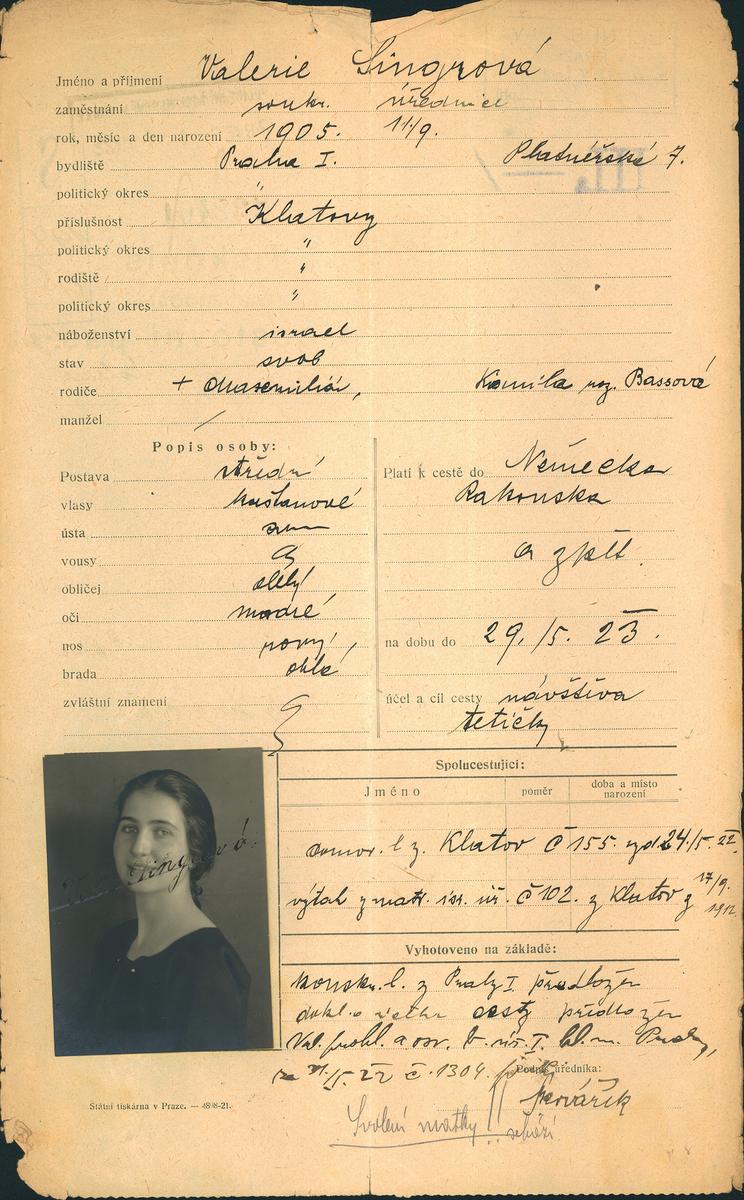 Jméno a příjmení Valerie Singrová
zaměstnání soukr. úřednice
rok, měsíc a den narození 1905. 11/9.
bydliště Praha I. Platnéřská 7.
politický okres "
příslušnost Klatovy
politický okres "
rodiště "
politický okres "
náboženství israel
stav svob
rodiče + Maxmilián, Kamila roz. Bassová
manžel /
Popis osoby:
Postava střední
vlasy kaštanové
ústa
vousy
obličej
oči modré
nos rovný
brada oblá
zvláštní znamení
Platí k cestě do Německa
Rakouska
a zpět.
na dobu do 29./5. 23.
účel a cíl cesty návštěva
tetičky
Singrová
Spolucestující:
Jméno poměr doba a místo narození
domov. l z. Klatov č 155. z 24./5. 22.
výtah z matr. isr. č 102. z Klatov z 17/9. 1912
Vyhotoveno na základě:
konskr. l. z Prahy I předložen
dokl. o cesty předložen
hl. m. Prahy,
22 č. 1304.
Podpis úředníka:
Kovářík
Svolení matky
Státní tiskárna v Praze. — 4898-21.